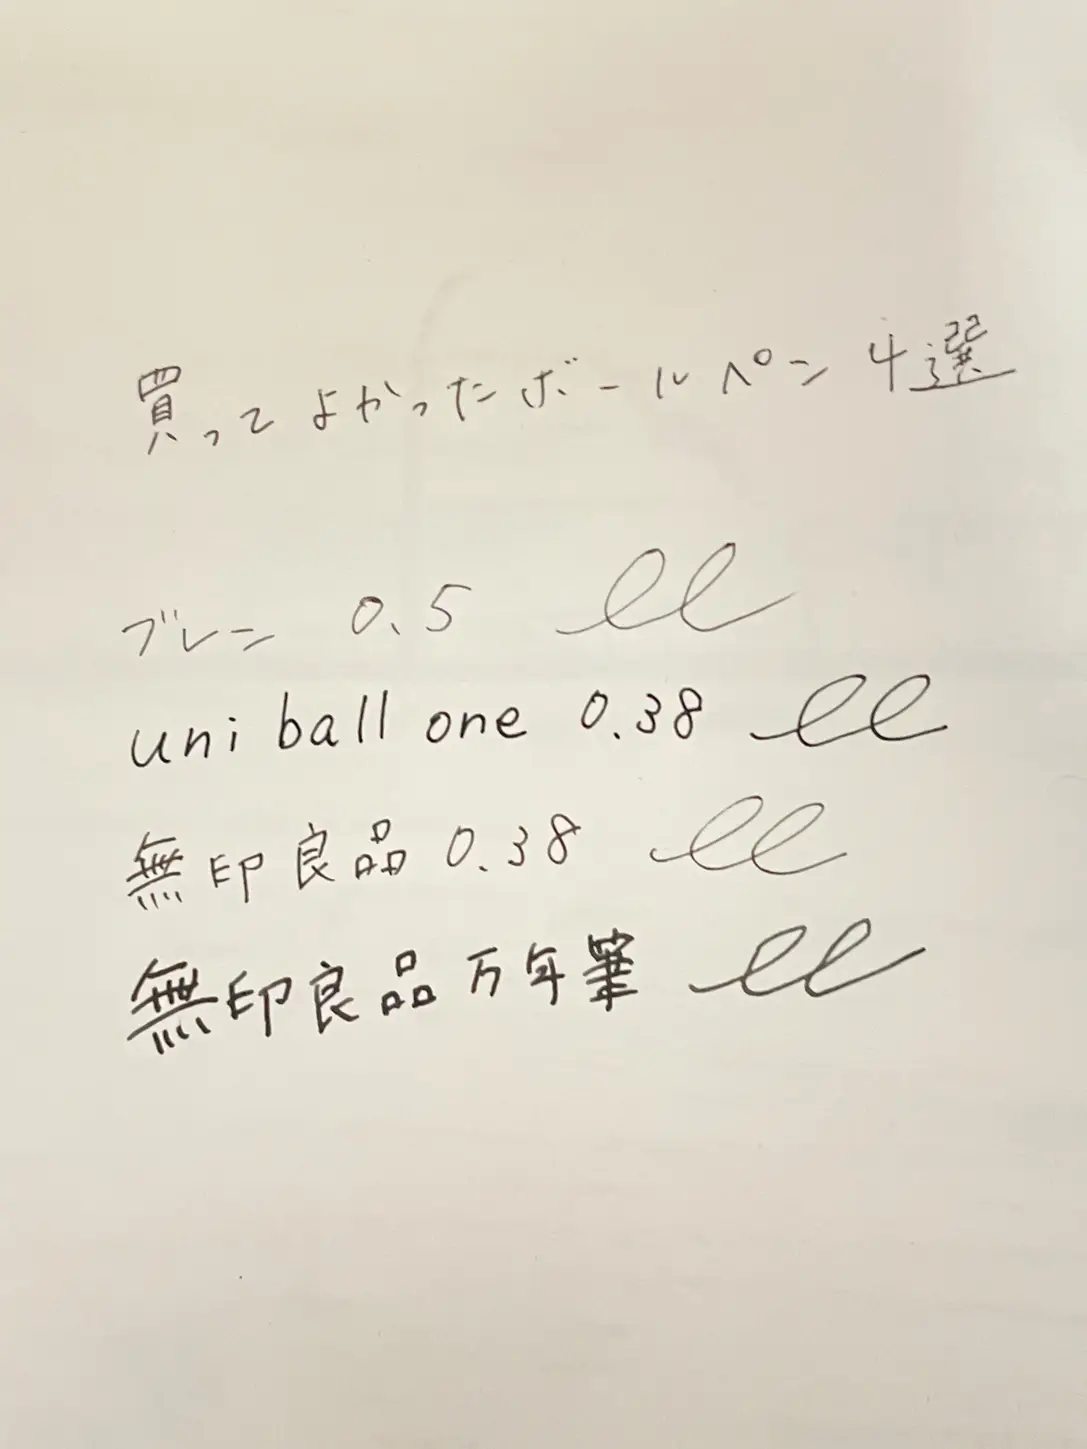 買ってよかったボールペン4選
ブレン 0.5
uni ball one 0.38
無印良品 0.38
無印良品万年筆